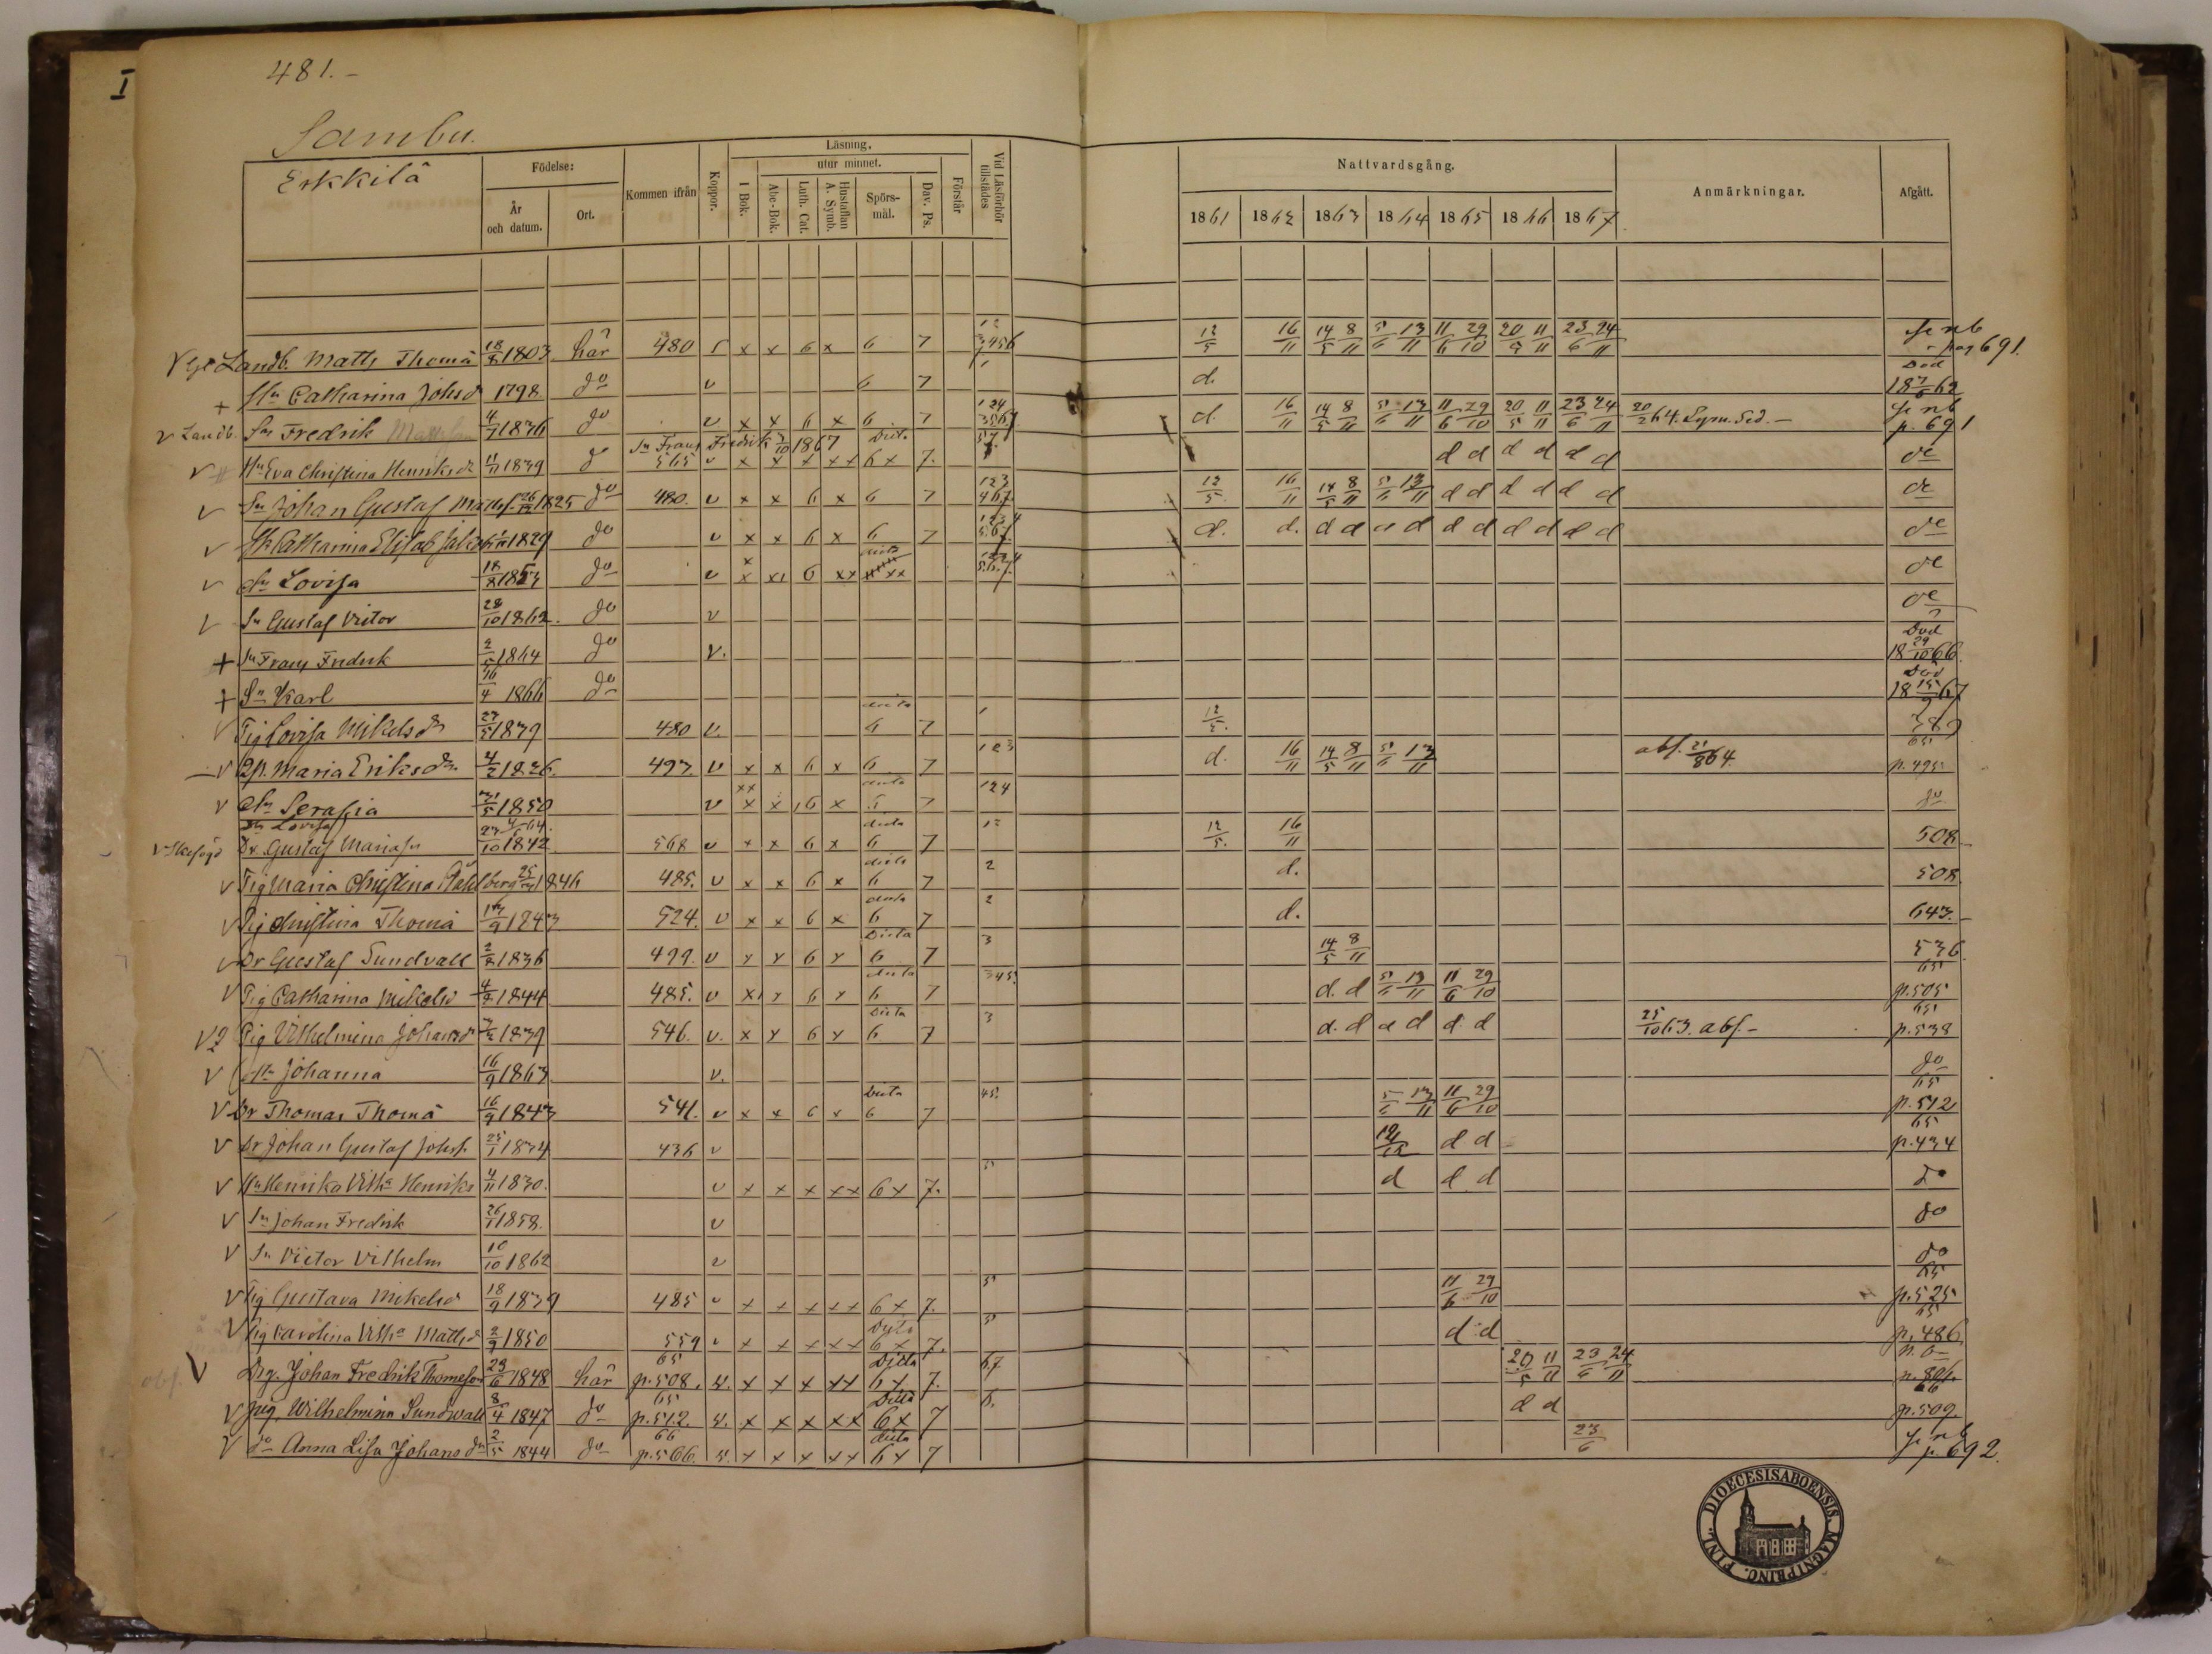 481.-
I
Sambu.
Erkkilä
Födelse:
År och datum.
Ort.
Kommen ifrån
Koppor.
Läsning.
I Bok.
utur minnet.
Abc-Bok.
Luth. Cat.
Hustaflan A. Symb.
Spörs-mål.
Dav. Ps.
Förstår
Vid Läsförhör tillstädes
Nattvardsgång.
1861 1862 1863 1864 1865 1866 1867
Anmärkningar.
Afgått.
Landb. Matts Thomä 18/8 1803 här 480 x x 6 x 6 7 12 3456 12/5 16/11 14/5 8/11 5/6 13/11 11/6 29/10 20/5 11/11 23/6 24/11 se nb pag 691.
+ Hu Catharina Johsdr 1798. do v 6 7 1 d. Död 18 62
v Landb. Sn Fredrik 4/7 1836 do v x x 6 x 6 7 124 3567 d. 16/11 14/5 8/11 5/6 13/11 11/6 29/10 20/5 11/11 23/6 24/11 20/2 64. Lysn. Sed. - se nb p. 691
Sn Frans Fredrik 1867 Dito
v Hu Eva Christina Henriksdr 11/11 1839 d 565 v x x x x x 6 x 7. 57. d d d d d d de
v Sn Johan Gustaf Mattss. 26/12 1825 do 480. v x x 6 x 6 7 123 467 12/5 16/11 14/5 8/11 5/6 13/11 d d d d d d de
v Hu Catharina Elisab. 1829 do v x x 6 x 6 7 1234 567. d. d. d d d d d d d d d d de
v dr Lovisa 18/8 1853 do v x x x 6 x x dito 5.6.7. de
v Sn Gustaf Victor 28/10 1862. do v de
+ Sn Frans Fredrik 2/5 1864 do v. Död 18 29/10 66.
+ Sn Karl 16/4 1866 do Död 18 15/9 67
v Pig Lovisa Mikelsdr 27/5 1839 480 v. dito 6 7 1 12/5.
v Qp. Maria Eriksdr. 4/2 1826. 493 v x x 6 x 6 7 123 d. 16/11 14/5 8/11 5/6 13/11 abs. 21/8 64. 65 p. 495
v dr Serafia 31/5 1850 v x x x x 6 x dito 7 124 do
dr Lovisa
v Dr Gustaf Mariasn 23/10 1842 568 v x x 6 x dito 6 7 12 12/5. 16/11 508
v Pig Maria Christina Ståhlberg 25/3 1846 485. v x x 6 x dito 6 7 2 d. 508.
v Pig Christina Thomä 13/9 1843 524. v x x 6 x dito 6 7 2 d. 643.-
v Dr Gustaf Sundvall 2/8 1836 499. v x x 6 x Dito 6 7 3 14/5 8/11 536.
v Pig Catharina Mikelsd 4/9 1844 485. v x x 6 x dito 6 7 345. d. d 5/6 13/11 11/6 29/10 65 p. 505
v Pig Vilhelmina Johansdr 1839 546. v. x x 6 x Dito 6 7 3 d. d d d d d 25/10 63. abs.- 65 p. 538
v dr Johanna 16/9 1863. v. do
v Dr Thomas Thomä 16/9 1843 541. v x x 6 x Dito 6 7 45. 5/6 13/11 11/6 29/10 65 p. 512
v Dr Johan Gustaf Johss. 25/1 1834 436 v 12/12 d d 65 p. 434
v Hu Henrika Vilha Henriks 4/11 1830. v x x x x x 6 x 7. 5 d d d do
v Sn Johan Fredrik 26/1 1858. v do
v Sn Victor Vilhelm 10/10 1862 v do
v Pig Gustava Mikelsd 18/9 1839 485 v x x x x x 6 x 7. 5 11/6 29/10 65 p. 525
v Pig Carolina Vilha Mattsdr 2/9 1850 559 v x x x x x Dito 6 x 7. 5 d d 65 p. 486
V Drg. Johan Fredrik Thomeson 23/6 1848 här 65 p. 508. v. x x x x x Ditto 6 x 7. 67 20/5 11/11 23/6 24/11
v Pig. Wilhelmina Sundvall 8/4 1847 do 65 p. 512. v. x x x x x Ditto 6 x 7 6. d d 66 p. 509.
v do Anna Lisa Johansdr 2/5 1844 do 66 p. 566. v. x x x x x dito 6 x 7 23/6 se nb p. 692.
DIOECESIS ABOENSIS. MAGNI PRINC. FINL.